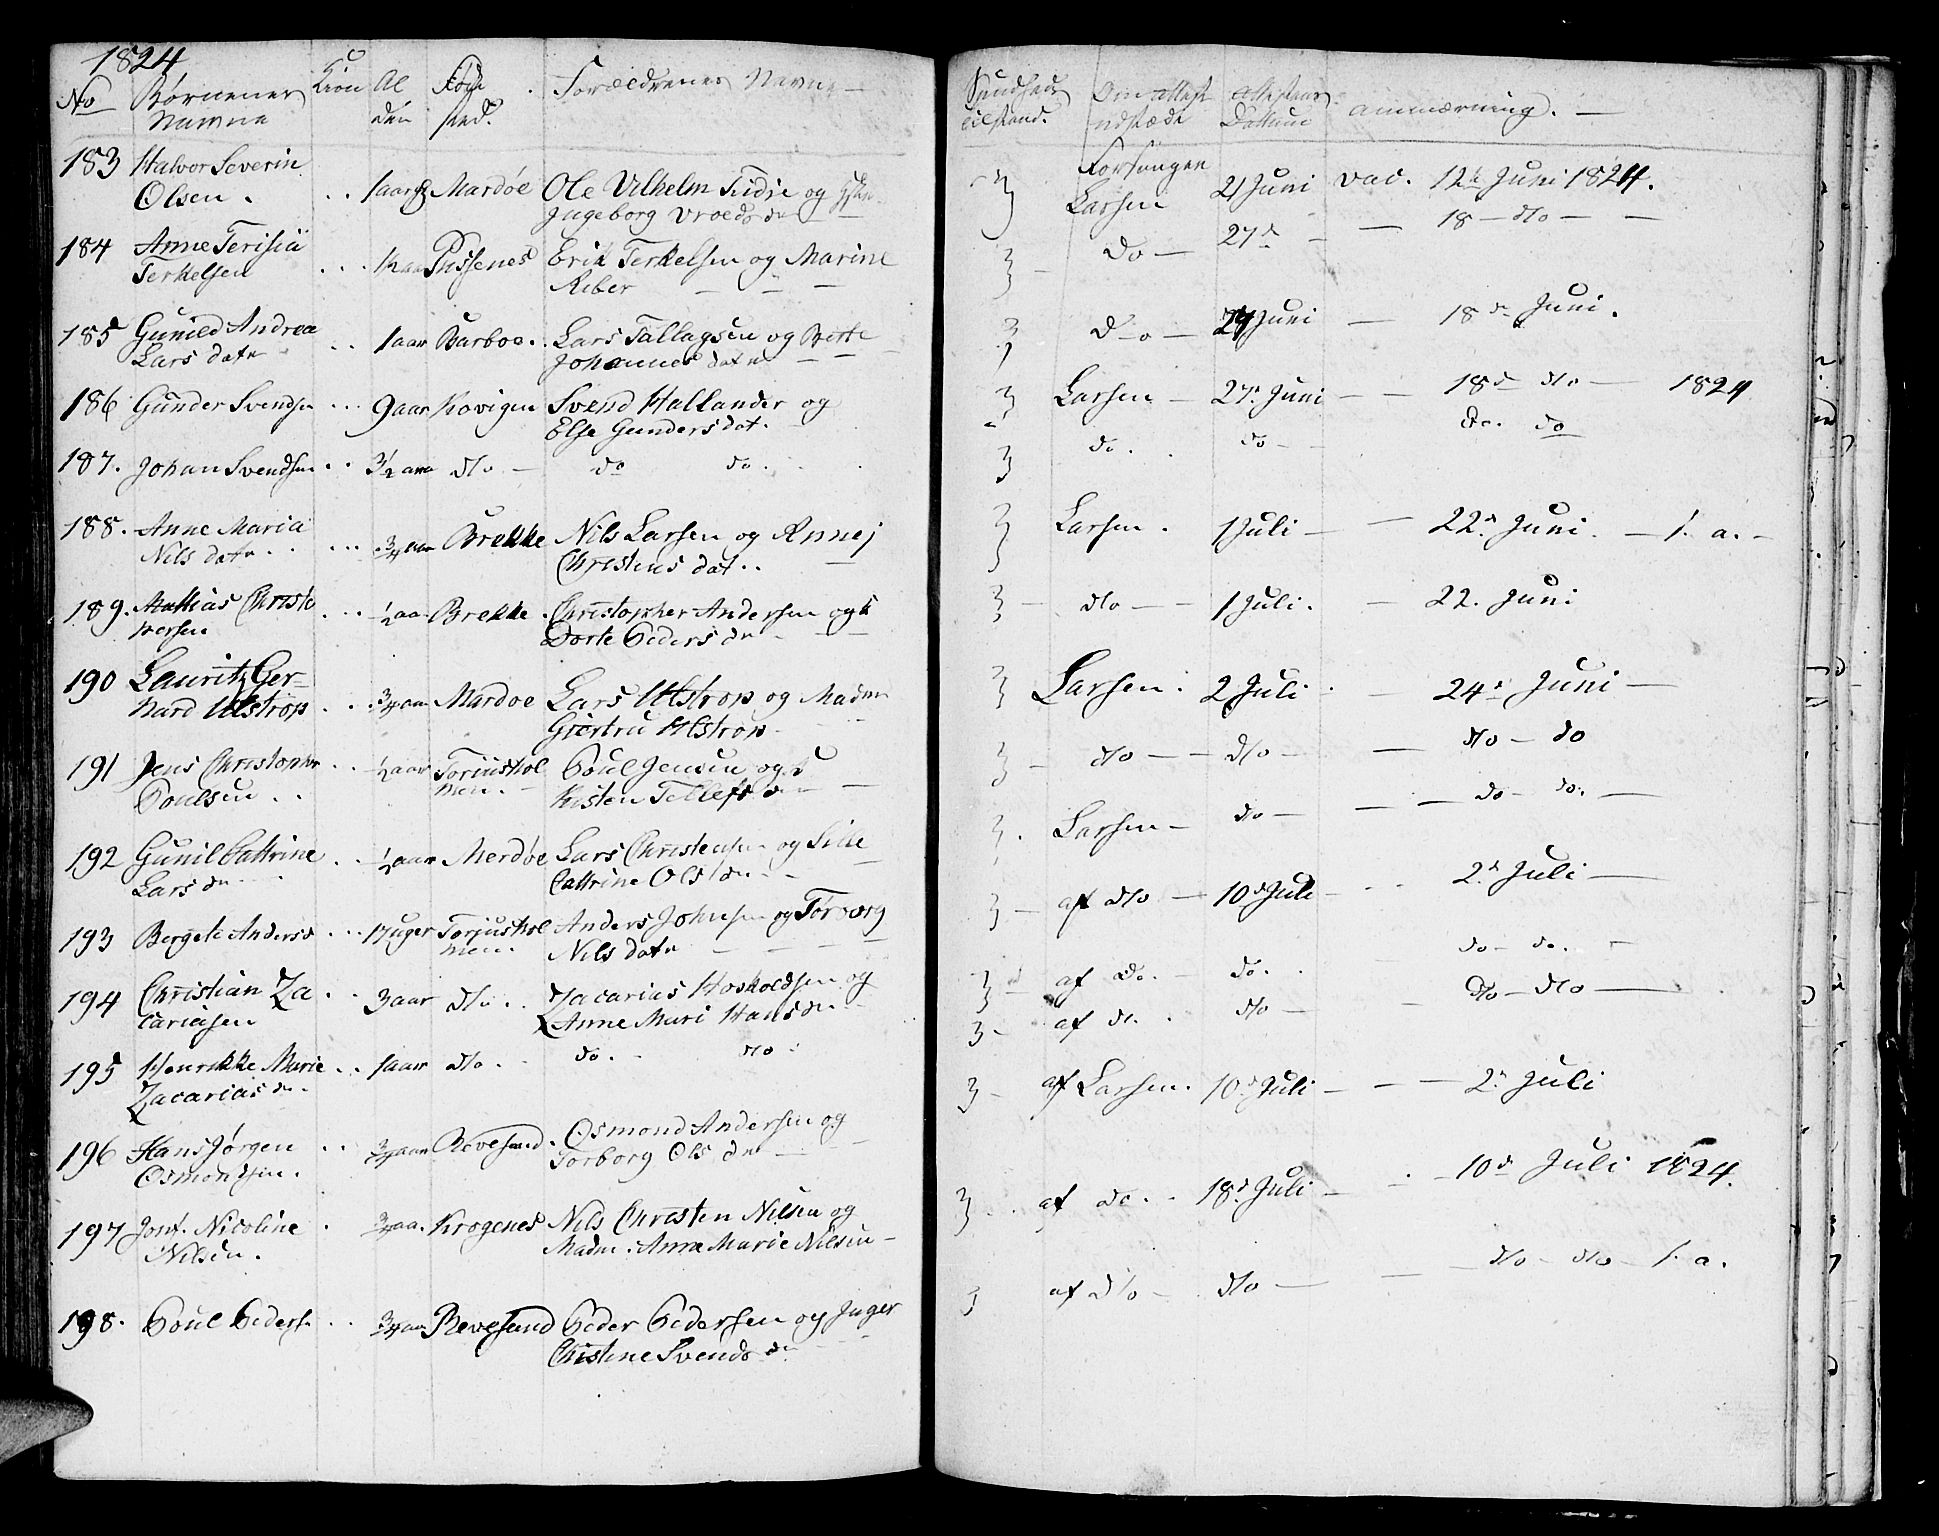 1824
No Børnenes Navne Kiøn Al den Føde sted. Forældrenes Navne
183 Halvor Severin Olsen . . . 1 aar Mardøe Ole Vilhelm og Ingeborg
184 Anne Terisia Terkelsen . . . Pussenes Erik Terkelsen og Marine Riber
185 Gunild Andrea Lars datr . . 1 aar Barboe . Lars Tallagsen og Berte Johannes datr
186 Gunder Svendsen . . . 9 aar Kovigen Svend Hallander og Else Gunders dat.
187. Johan Svendsen . . 3 1/2 aar d/o do do.
188. Anne Maria Nils datr . . . . . 3/4 aar Brekke Nils Larsen og Anne Christens dat. .
189. Mathias Christopersen . . . 1/2 aar Brekke . Christopher Andersen og Dorte Peders dr
190 Lauritz Gerhard Ulstrop . . . 3/4 aar Mardoe Lars Ulstrop og Madm Giertru Ulstrop
191 Jens Christopher Poulsen . . 1/2 aar Torjusholmen . Poul Jensen og Kisten Tellefs dr
192 Gunil Cattrine Lars dr . . 1/2 aar Merdøe Lars Christensen og Sille Cattrine Ols dr
193 Bergete Anders d . . . 17 uger Torjusholmen . Anders Johnsen og Torborg Nils datr
194 Christian Zacariasen . . 3 aar d/o . . Zacarias Hoskoldsen og Anne Mari Hans dr
195 Henrikke Marie Zacarias dr . . 1 aar d/o . do . d/o .
196 Hans Jørgen Osmondsen . . . 3/4 aar Revesand . Osmond Andersen og Torborg Ols dr
197 Jonf. Nicoline Nilsen . . 3/4 aa. Krogenes Nils Christen Nilsen og Madm . Anne Marie Nilsen
198. Poul Peders . . 3/4 aar Revesand Peder Pedersen og Inger Christine Svends dr
Sundheds tilstand. Om attest udstæde attestens Dattum anmærning .
3 Forsangen Larsen 21 Juni vac. 12te Juni 1824.
3 Do 27d 18 d/o
3 D-o 27 Juni 18d Juni .
3 Larsen 27d Juni 18d d/o 1824
3 do . do do. do
3 Larsen . 1 Juli 22d Juni . 1. a.
3 d/o 1 Juli . 22. Juni
3 Larsen . 2 Juli . 24d Juni
3 d/o d/o d/o do
3 . Larsen do do do.
3 af d/o 10d Juli 2d Juli
3 af do. do. do do.
3 af do . d/o d/o d/o
3 af Larsen . 10d Juli 2d Juli
3 af do. 18d Juli 10d Juli 1824.
3 af d/o d/o d/o d/o 1. a.